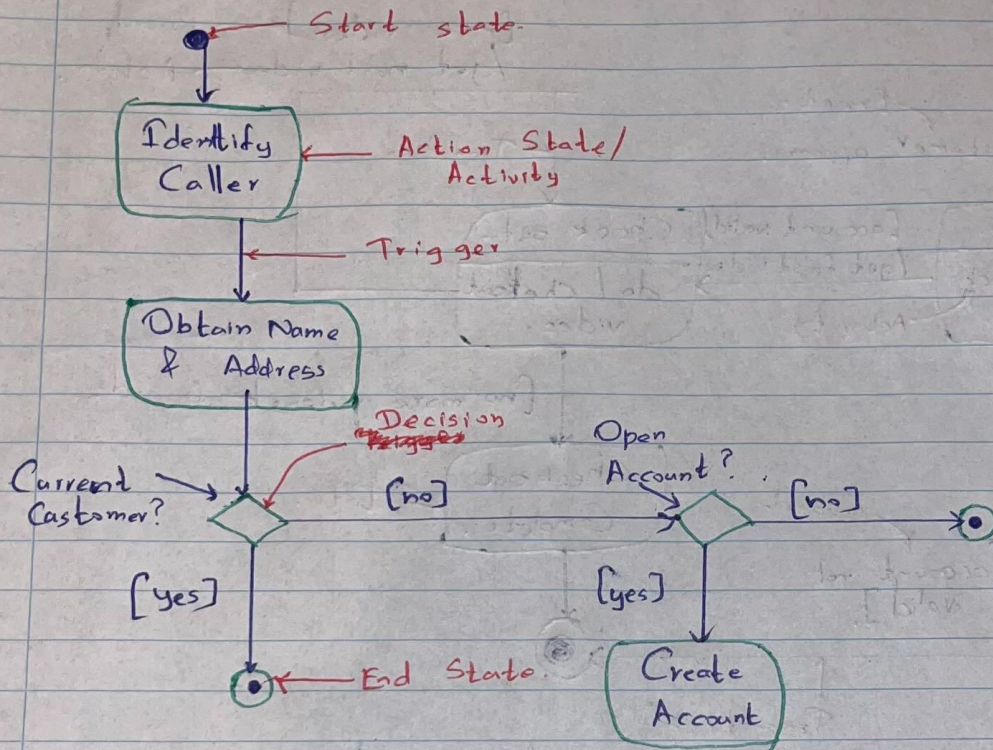 Start state.
Identify
Caller
Action State/
Activity
Trigger
Obtain Name
& Address
Decision
Open
Account?
Current
Castomer?
[no]
[no]
[yes]
[yes]
End State.
Create
Account